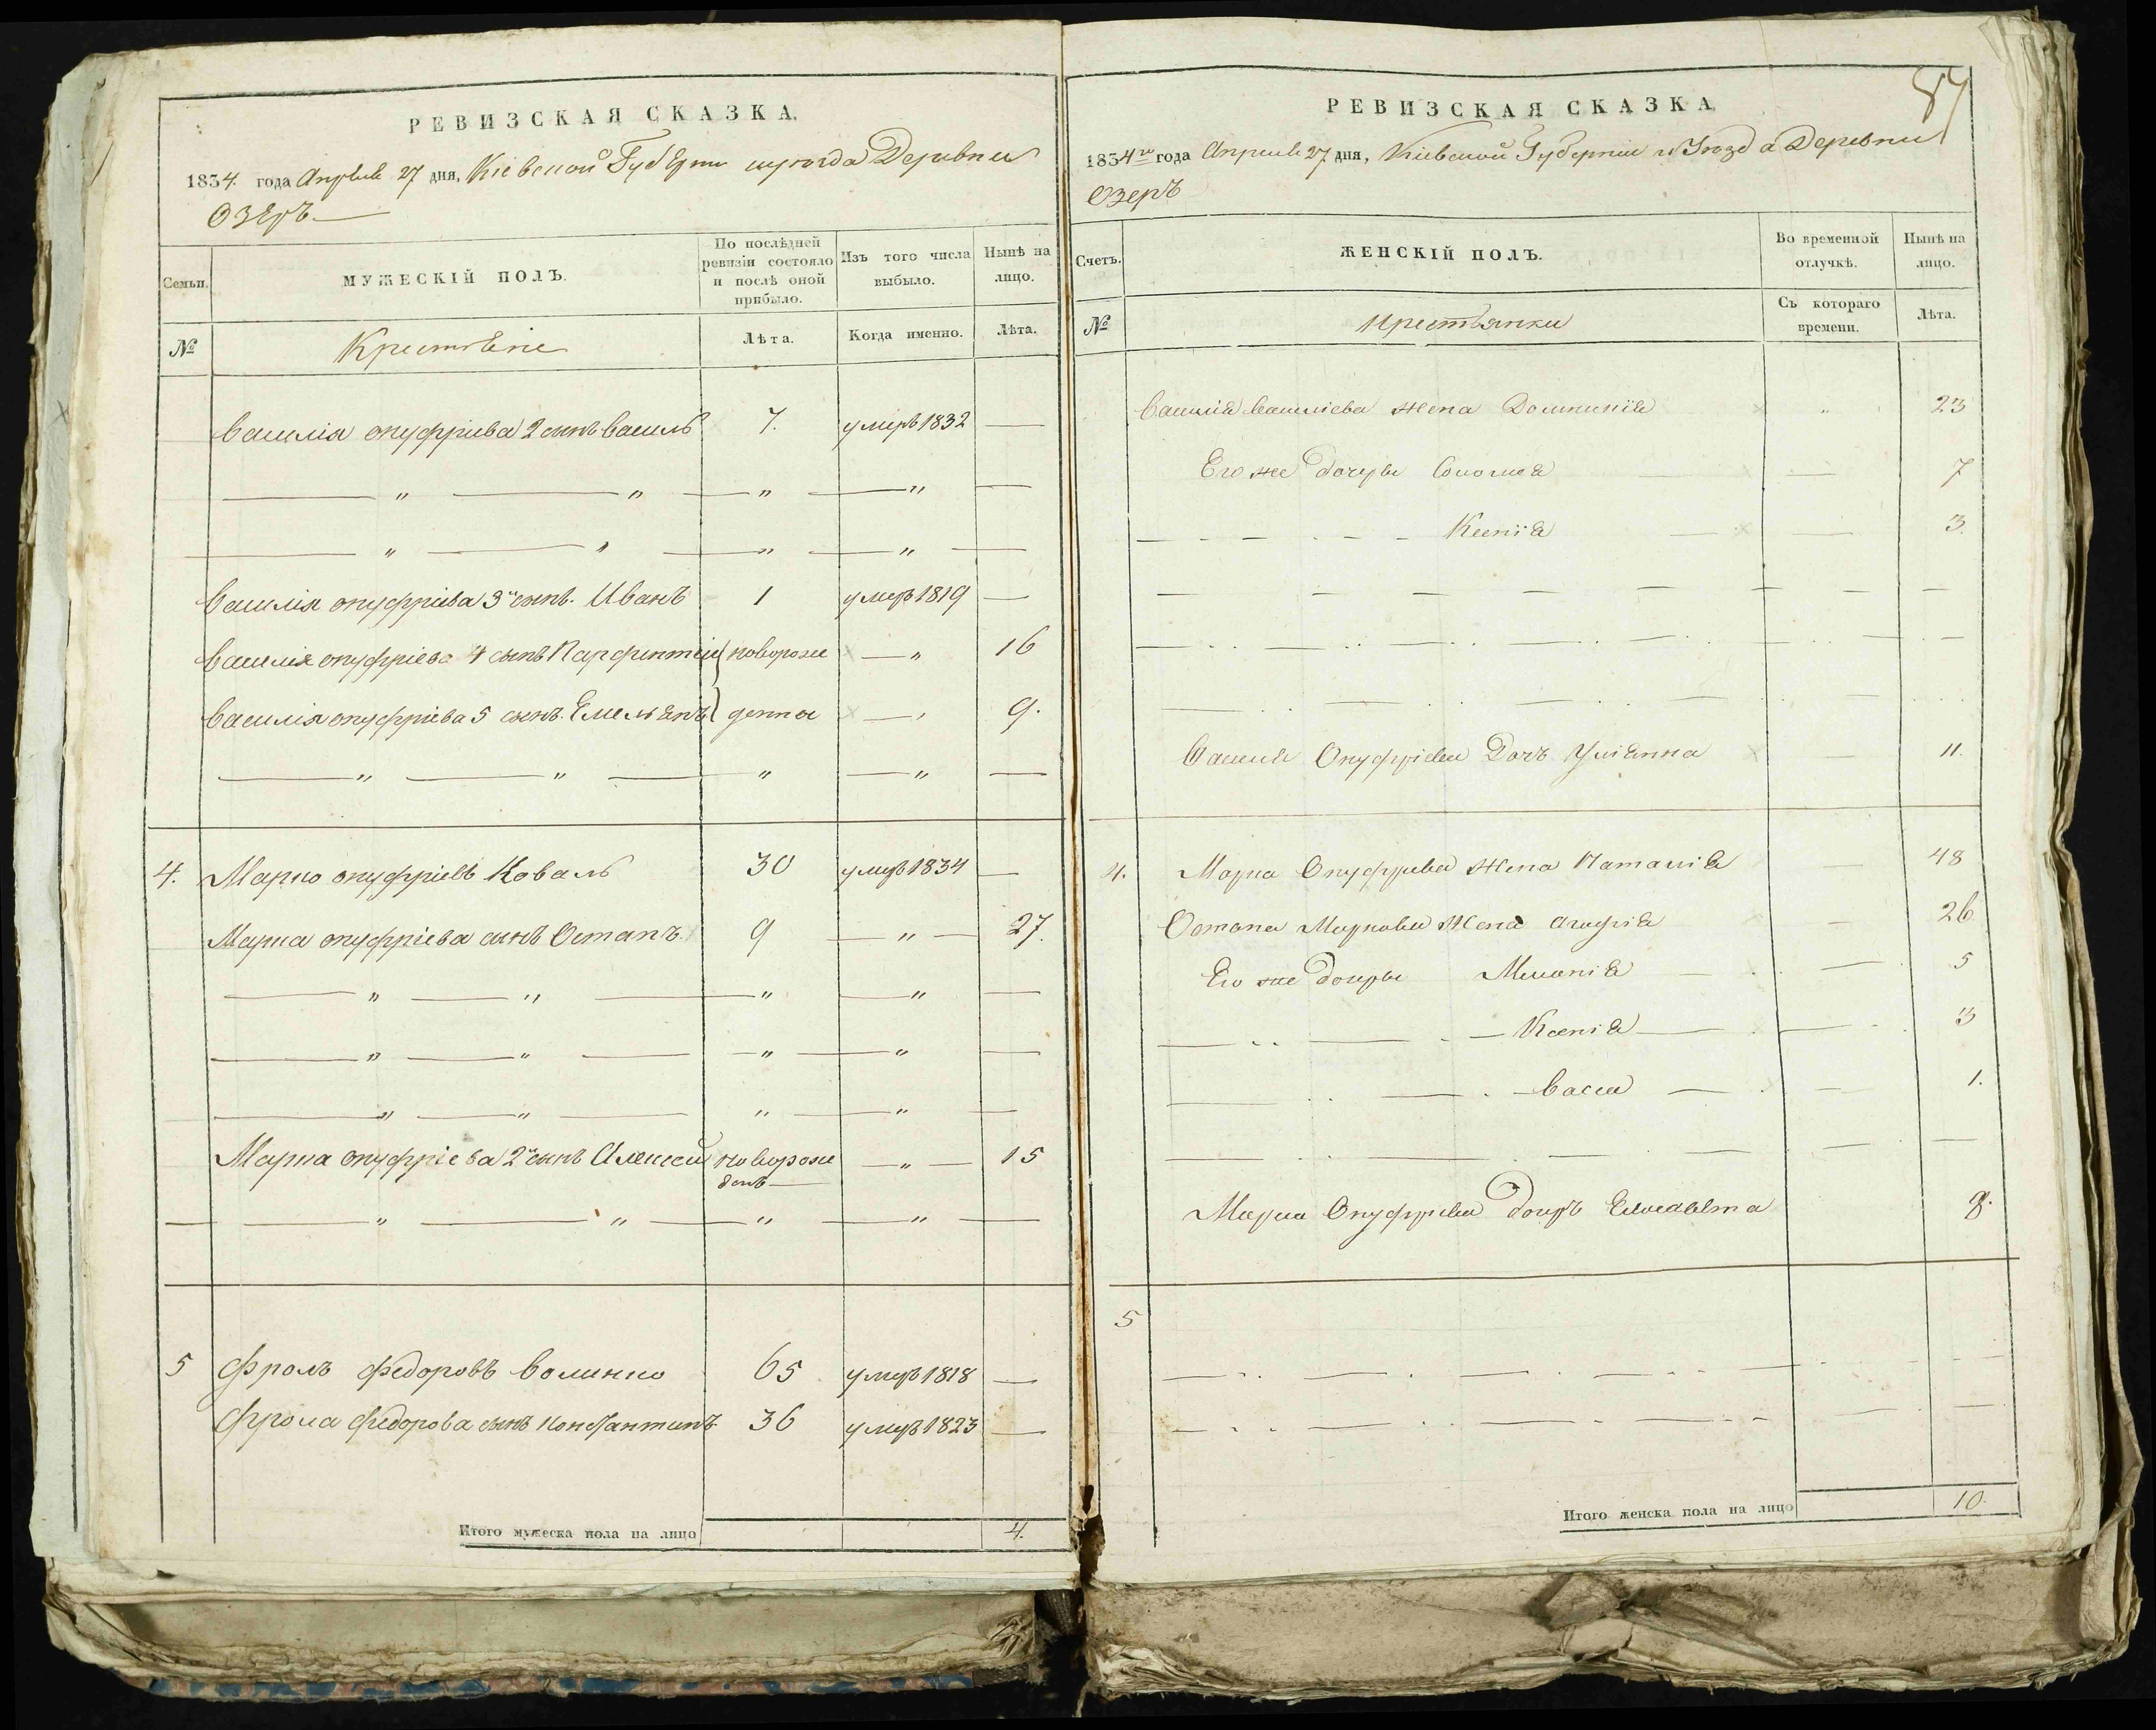 РЕВИЗСКАЯ СКАЗКА.
1834. года Апреля 27 дня, Кіевской Губерни и уезда Деревни
Озеръ
Семьи. МУЖЕСКІЙ ПОЛЪ. По послѣдней ревизіи состояло и послѣ оной прибыло. Изъ того числа выбыло. Нынѣ на лицо.
№ Крестьяне Лѣта. Когда именно. Лѣта.
Василія онуфриева 2 сынъ Василь 7. умеръ 1832
Василія онуфріева 3й сынъ Иванъ 1 умеръ 1819
Василія онуфріева 4 сынъ Парфентій новорож 16
Василія онуфріева 5 сынъ Емельянъ денна 9.
4. Марко онуфріевъ Коваль 30 умеръ 1834
Марка онуфріева сынъ Остапъ 9 27.
Марка онуфріева 2й сынъ Алексей новорож 15
денъ
5 Фролъ Федоровъ Волинко 65 умеръ 1818
Фрола Федорова сынъ Константинъ 36 умеръ 1823
Итого мужеска пола на лицо 4.
84
РЕВИЗСКАЯ СКАЗКА.
1834го года Апреля 27 дня, Кіевской Губерніи и Уезда Деревни
Озеръ
Счетъ. ЖЕНСКІЙ ПОЛЪ. Во временной отлучкѣ. Нынѣ на лицо.
№ Крестьянки Съ котораго времени. Лѣта.
Василія Василіева жена Домникія 23
Его же дочери Соломея 7
Ксенія 3.
Василія Онуфріева Дочъ Уліянна 11.
4. Марка Онуфріева жена Наталія 48
Остапа Маркова жена Агафія 26
Его же дочеры Меланія 5
Ксенія 3
Васса 1.
Марка Онуфріева дочеръ Елисавѣта 8.
5
Итого женска пола на лицо 10.